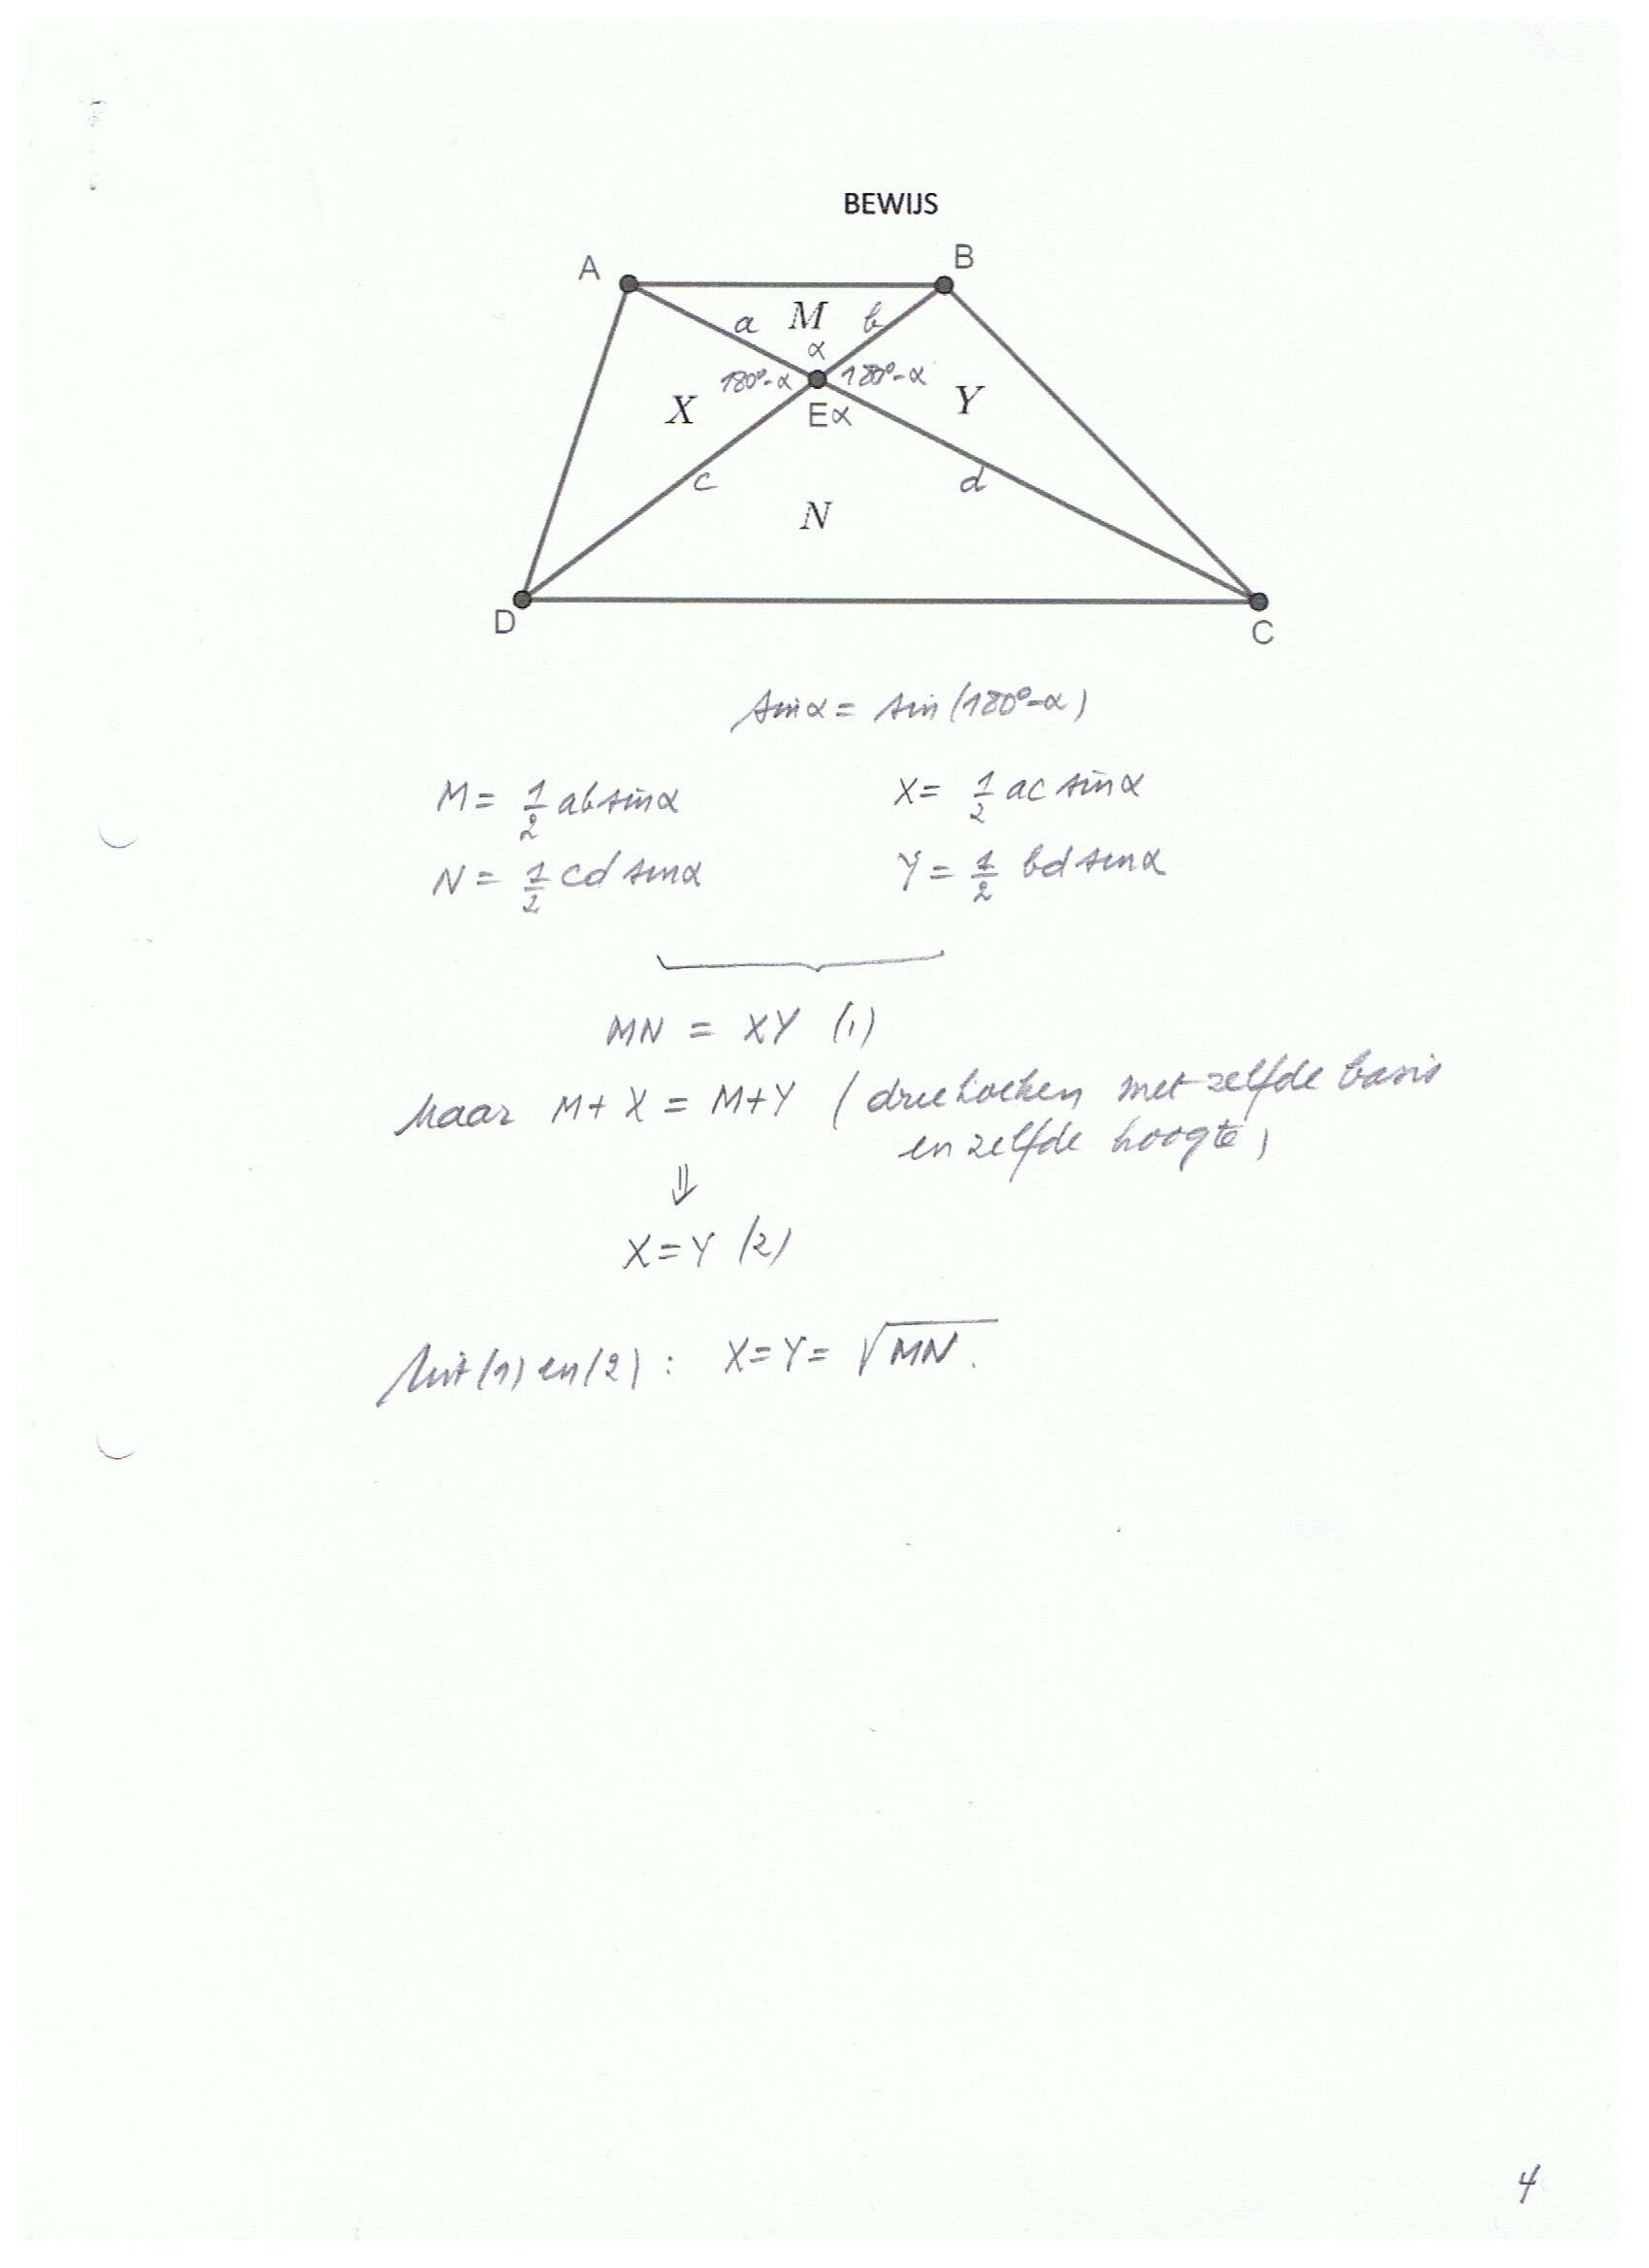 BEWIJS
A
B
a M b
α
180°-α 180°-α
X Eα Y
c d
N
D
C
sin α = sin (180°-α)
M = 1/2 ab sin α X = 1/2 ac sin α
N = 1/2 cd sin α Y = 1/2 bd sin α
MN = XY (1)
Maar M + X = M + Y (driehoeken met zelfde basis
en zelfde hoogte)
⇓
X = Y (2)
Uit (1) en (2) : X = Y = √MN.
4